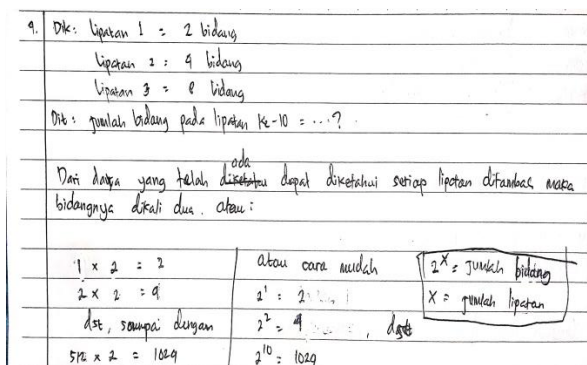 4. Dik: Lipatan 1 = 2 bidang
Lipatan 2 = 4 bidang
Lipatan 3 = 8 bidang
Dit: jumlah bidang pada lipatan ke-10 = ...?
ada
Dari data yang telah diketahui dapat diketahui setiap lipatan ditambah maka
bidangnya dikali dua. atau:
1 x 2 = 2
2 x 2 = 4
dst, sampai dengan
512 x 2 = 1024
atau cara mudah
2¹ = 2
2² = 4 , dst
2¹⁰ = 1024
2ˣ = jumlah bidang
x = jumlah lipatan